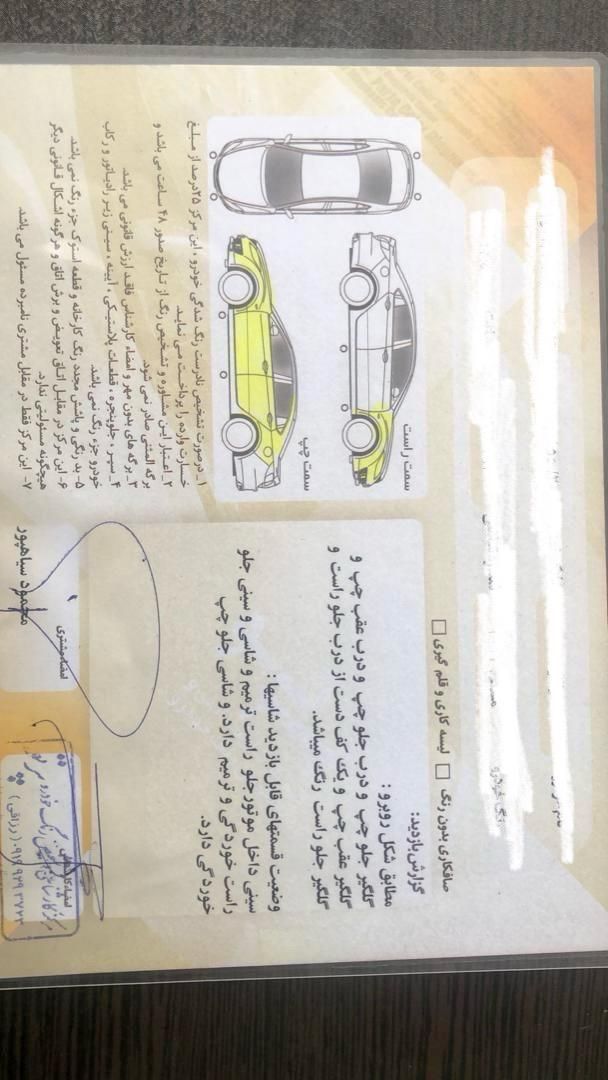 صافکاری بدون رنگ لیسه کاری و قلم گیری
گزارش بازدید:
مطابق شکل روبرو :
گلگیر جلو چپ و درب جلو چپ و درب عقب چپ و
گلگیر عقب چپ و یک کف دست از درب جلو راست و
گلگیر جلو راست رنگ میباشد.
وضعیت قسمتهای قابل بازدید شاسیها :
سینی داخل موتور جلو راست ترمیم و شاسی و سینی جلو
راست خوردگی و ترمیم دارد. و شاسی جلو چپ
خوردگی دارد.
سمت راست
سمت چپ
۱_ درصورت تشخیص نادرست رنگ شدگی خودرو ، این مرکز ۲۵درصد از مبلغ
خسارت وارده را پرداخت می نماید.
۲_ اعتبار این مشاوره و تشخیص رنگ از تاریخ صدور ۴۸ ساعت می باشد و
برگه المثنی صادر نمی شود.
۳_ برگه های بدون مهر و امضاء کارشناس فاقد ارزش قانونی می باشد.
۴_ سپر ، جلوپنجره ، قطعات پلاستیکی ، آیینه ، سینی زیر رادیاتور و رکاب
خودرو جزء رنگ نمی باشد.
۵- بد رنگی و پاشش مجدد رنگ کارخانه و قطعه استوک جزء رنگ نمی باشد.
۶- این مرکز در مقابل اتاق تعویض و برش اتاق و هرگونه اشکال قانونی دیگر
هیچگونه مسئولیتی ندارد.
۷- این مرکز فقط در مقابل مشتری نامبرده مسئول می باشد.
امضاء مشتری
محمود سیاهپور